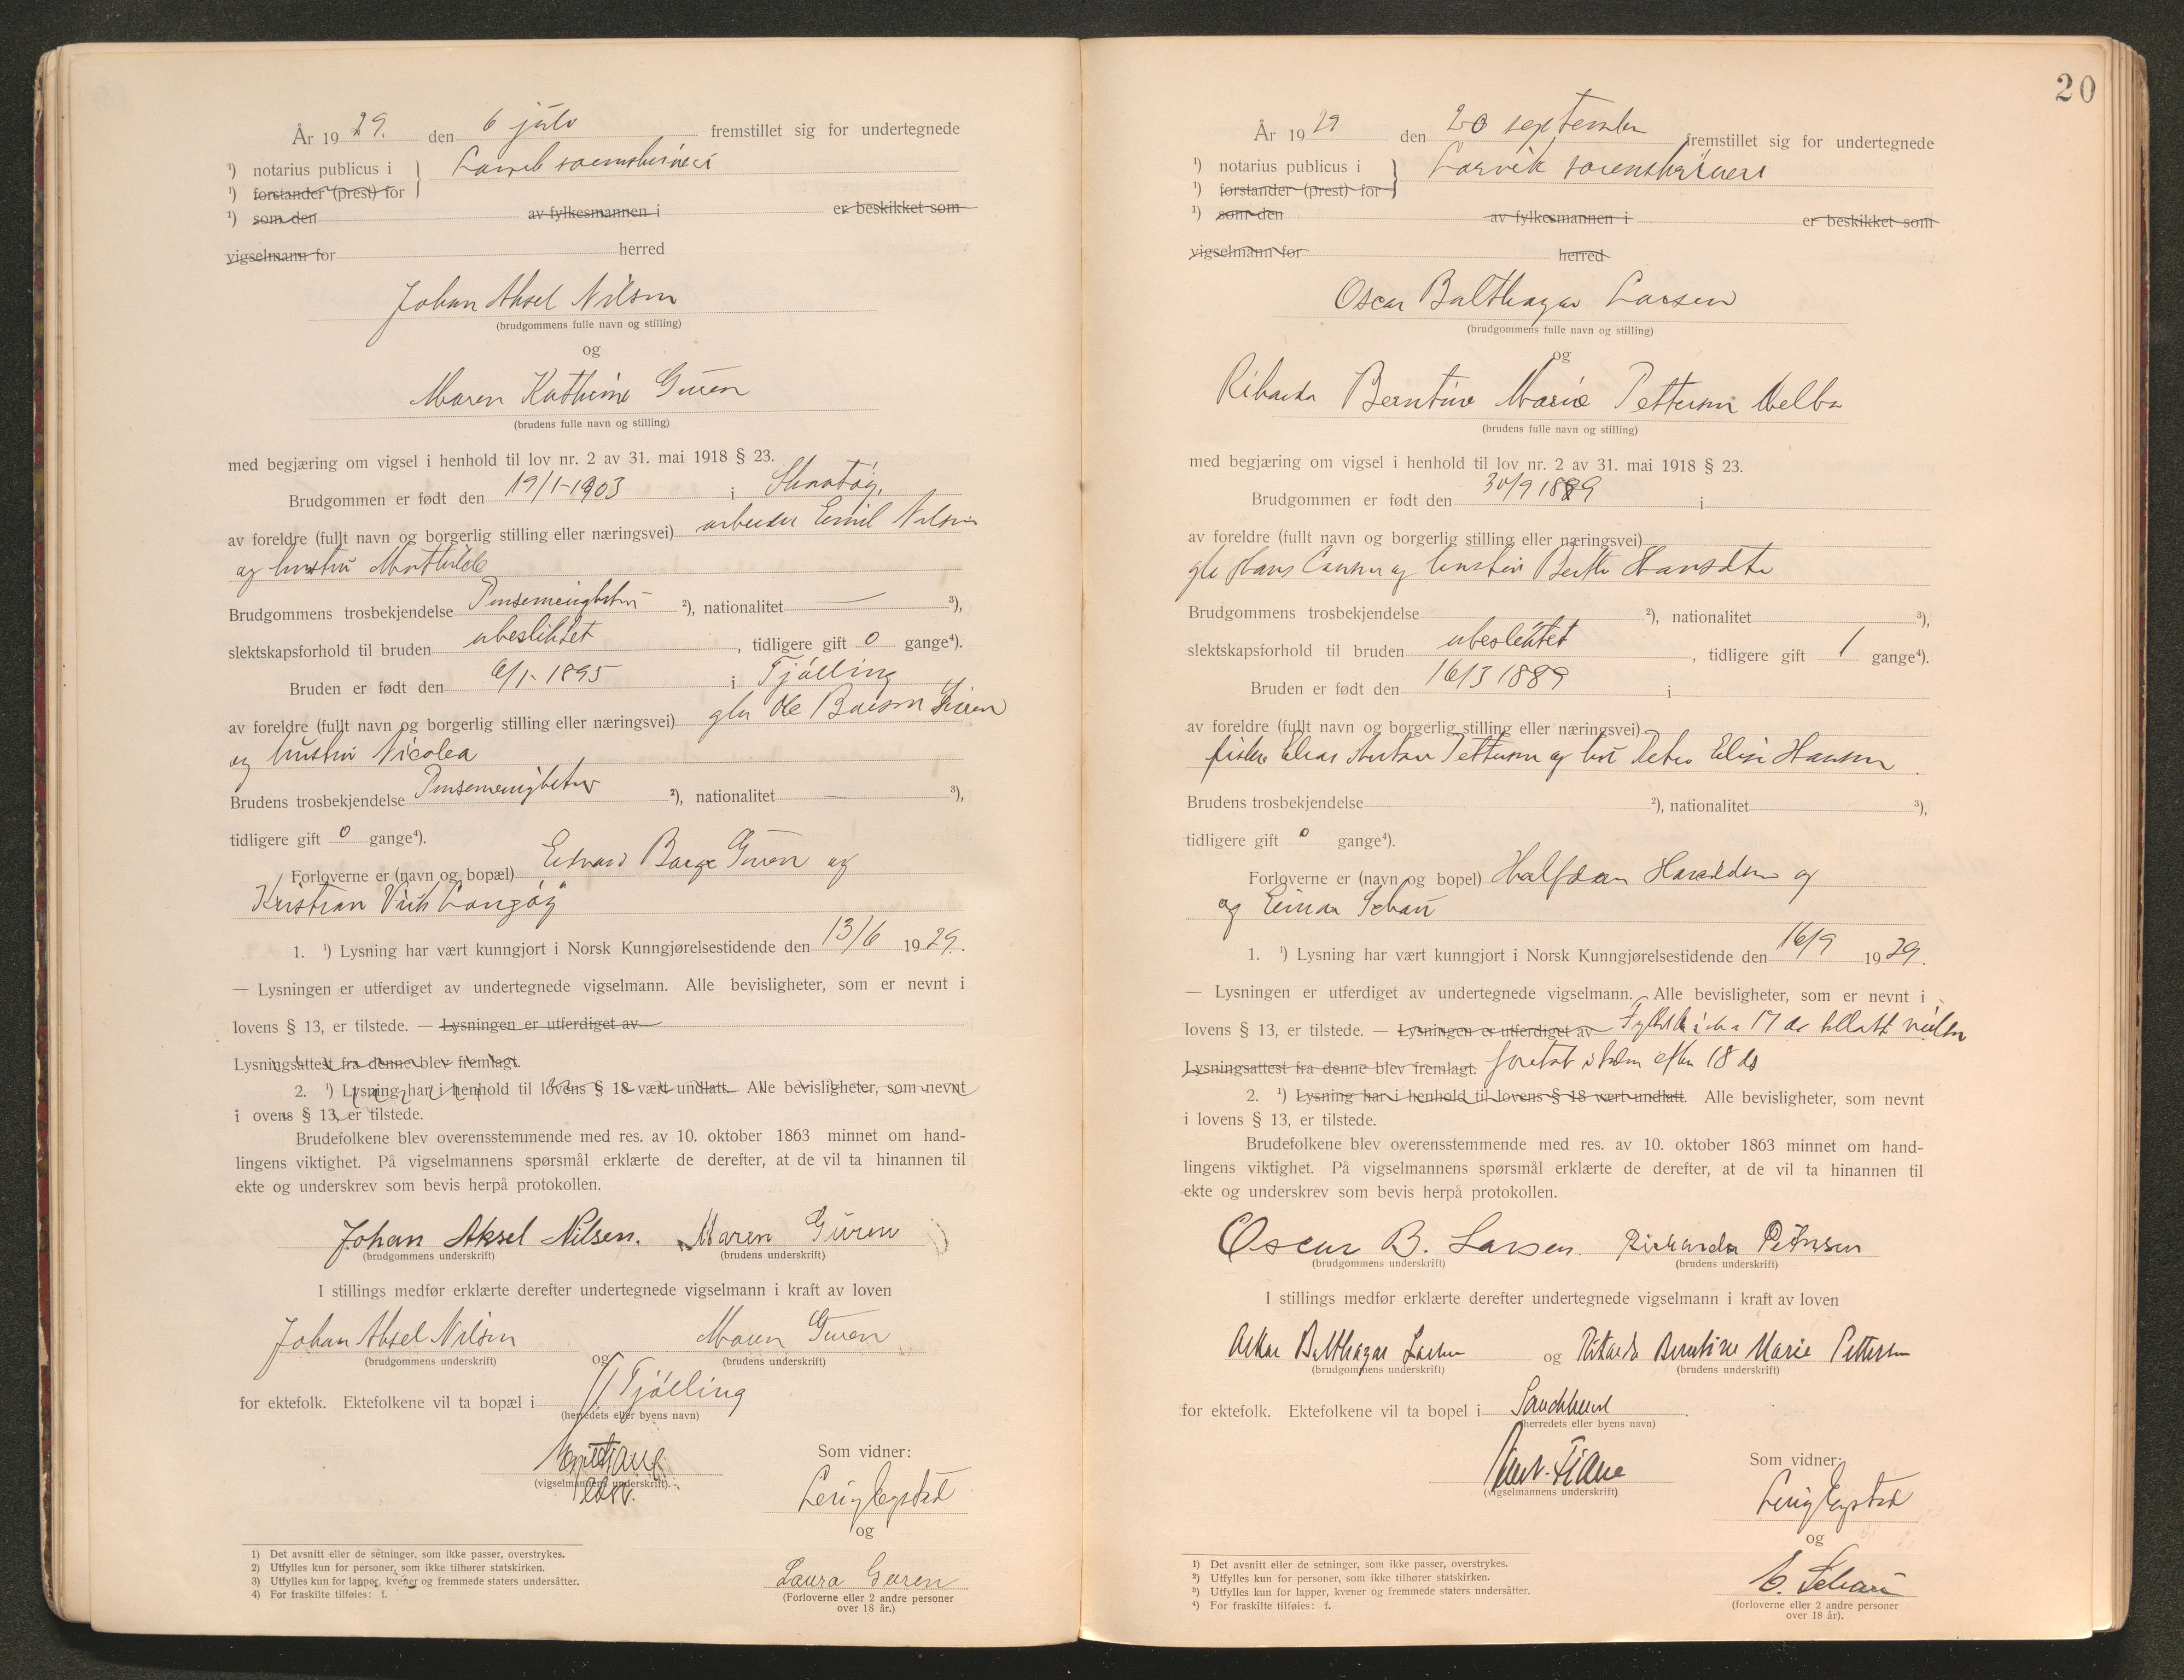 År 1929. den 6 juli fremstillet sig for undertegnede
¹) notarius publicus i Larvik sorenskriveri
¹) forstander (prest) for
¹) som den av fylkesmannen i er beskikket som
vigselmann for herred
Johan Aksel Nilsen
(brudgommens fulle navn og stilling)
og
Maren Kathrine Guren
(brudens fulle navn og stilling)
med begjæring om vigsel i henhold til lov nr. 2 av 31. mai 1918 § 23.
Brudgommen er født den 19/1-1903 i
av foreldre (fullt navn og borgerlig stilling eller næringsvei) arbeider Emil Nilsen
og hustru Mathilde
Brudgommens trosbekjendelse Pinsemenigheten ²), nationalitet — ³),
slektskapsforhold til bruden ubeslektet, tidligere gift 0 gange⁴).
Bruden er født den 6/1-1895 i Tjølling
av foreldre (fullt navn og borgerlig stilling eller næringsvei) Ole Guren
og hustru Nicolea
Brudens trosbekjendelse Pinsemenigheten ²), nationalitet — ³),
tidligere gift 0 gange⁴).
Forloverne er (navn og bopæl) Edvard Borge Guren og
Kristian Langøy
1. ¹) Lysning har vært kunngjort i Norsk Kunngjørelsestidende den 13/6 1929.
— Lysningen er utferdiget av undertegnede vigselmann. Alle bevisligheter, som er nevnt i
lovens § 13, er tilstede. — Lysningen er utferdiget av
Lysningsattest fra denne blev fremlagt.
2. ¹) Lysning har i henhold til lovens § 18 vært undlatt. Alle bevisligheter, som nevnt
i ovens § 13, er tilstede.
Brudefolkene blev overensstemmende med res. av 10. oktober 1863 minnet om hand-
lingens viktighet. På vigselmannens spørsmål erklærte de derefter, at de vil ta hinannen til
ekte og underskrev som bevis herpå protokollen.
Johan Aksel Nilsen. Maren Guren
(brudgommens underskrift) (brudens underskrift)
I stillings medfør erklærte derefter undertegnede vigselmann i kraft av loven
Johan Aksel Nilsen og Maren Guren
(brudgommens underskrift) (brudens underskrift)
for ektefolk. Ektefolkene vil ta bopæl i Tjølling
(herredets eller byens navn)
Som vidner:
(vigselmannens underskrift).
og
Laura Guren
(Forloverne eller 2 andre personer
over 18 år.)
1) Det avsnitt eller de setninger, som ikke passer, overstrykes.
2) Utfylles kun for personer, som ikke tilhører statskirken.
3) Utfylles kun for lapper, kvener og fremmede staters undersåtter.
4) For fraskilte tilføies: f.
20
År 1929 den 20 september fremstillet sig for undertegnede
¹) notarius publicus i Larvik sorenskriveri
¹) forstander (prest) for
¹) som den av fylkesmannen i er beskikket som
vigselmann for herred
Oscar Balthazar Larsen
(brudgommens fulle navn og stilling)
og
Rikarda Berntine Marie Pettersen Melbo
(brudens fulle navn og stilling)
med begjæring om vigsel i henhold til lov nr. 2 av 31. mai 1918 § 23.
Brudgommen er født den 30/9 1889 i
av foreldre (fullt navn og borgerlig stilling eller næringsvei)
Hans Larsen og hustru Berthe Hansdtr
Brudgommens trosbekjendelse ²), nationalitet ³),
slektskapsforhold til bruden ubeslektet, tidligere gift 1 gange⁴).
Bruden er født den 16/3 1889 i
av foreldre (fullt navn og borgerlig stilling eller næringsvei)
fisker Elias Anton Pettersen og hst Petra Elise Hansen.
Brudens trosbekjendelse ²), nationalitet ³),
tidligere gift 0 gange⁴).
Forloverne er (navn og bopel) Halfdan Haraldsen og
og Einar Schau
1. ¹) Lysning har vært kunngjort i Norsk Kunngjørelsestidende den 16/9 1929.
— Lysningen er utferdiget av undertegnede vigselmann. Alle bevisligheter, som er nevnt i
lovens § 13, er tilstede. — Lysningen er utferdiget av 17 ds tillatt
Lysningsattest fra denne blev fremlagt. foretat efter 18 ds
2. ¹) Lysning har i henhold til lovens § 18 vært undlatt. Alle bevisligheter, som nevnt
i lovens § 13, er tilstede.
Brudefolkene blev overensstemmende med res. av 10. oktober 1863 minnet om hand-
lingens viktighet. På vigselmannens spørsmål erklærte de derefter, at de vil ta hinannen til
ekte og underskrev som bevis herpå protokollen.
Oscar B. Larsen. Rickarda Petersen
(brudgommens underskrift) (brudens underskrift)
I stillings medfør erklærte derefter undertegnede vigselmann i kraft av loven
Oskar Balthazar Larsen og Rikarda Berntine Marie Pettersen
(brudgommens underskrift) (brudens underskrift)
for ektefolk. Ektefolkene vil ta bopel i
(herredets eller byens navn)
Som vidner:
(vigselmannens underskrift)
og
E. Schau
(forloverne eller 2 andre personer
over 18 år).
¹) Det avsnitt eller de setninger, som ikke passer, overstrykes.
²) Utfylles kun for personer, som ikke tilhører statskirken.
³) Utfylles kun for lapper, kvener og fremmede staters undersåtter.
⁴) For fraskilte tilføies: f.